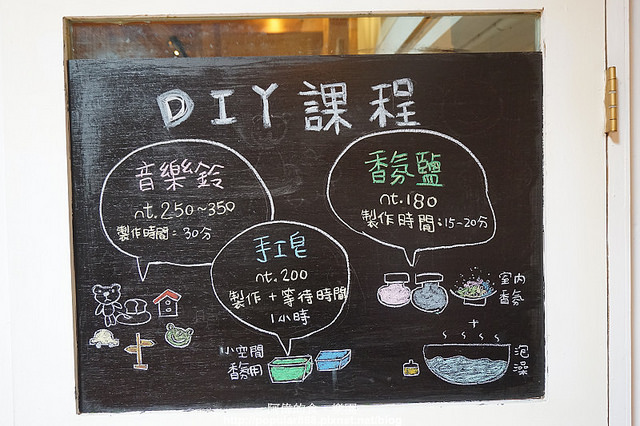 DIY 課程
音樂鈴
nt.250~350
製作時間：30分
香氛鹽
nt.180
製作時間：15-20分
手工皂
nt.200
製作+等待時間
1小時
室內
香氛
+
泡
澡
小空間
香氛用